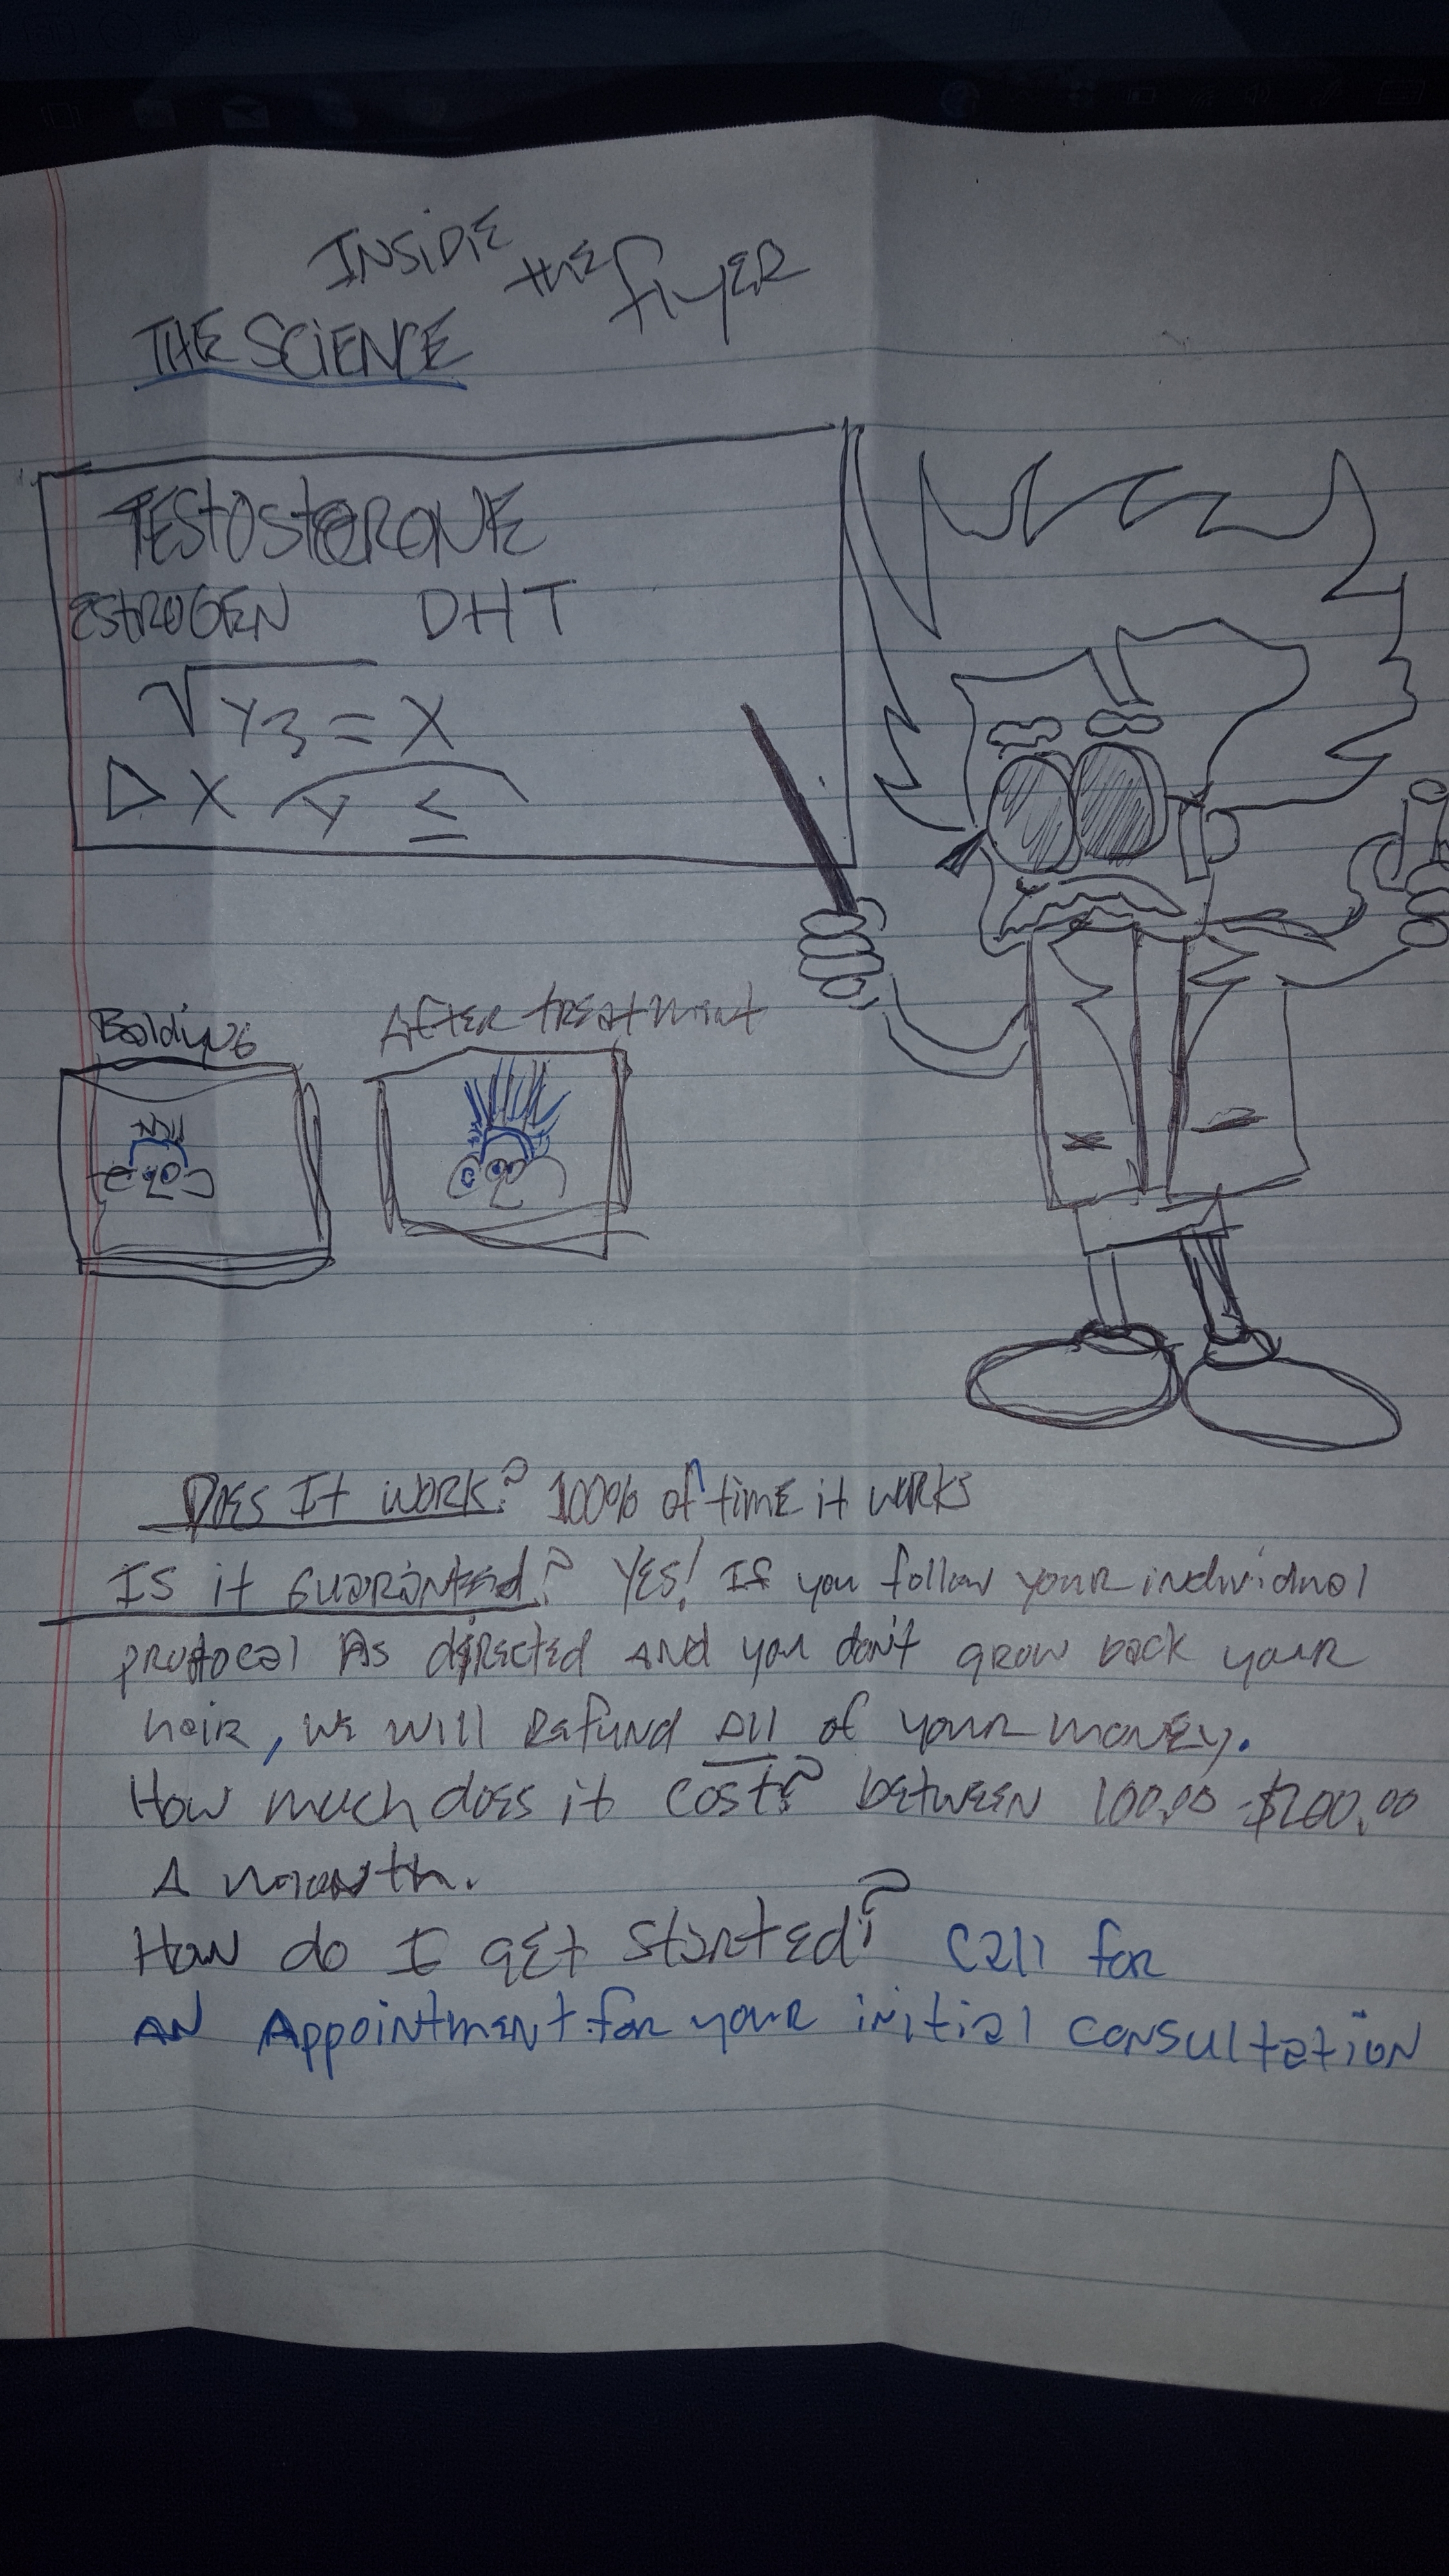 INSIDE the flyER
THE SCIENCE
TESTOSTERONE
ESTROGEN DHT
√y3 = X
▷ X y ≤
Balding
After treatment
Does It work? 100% of time it works
Is it Guaranteed? YES! If you follow your individual
protocal As directed AND you don't grow back your
hair, we will Refund All of your money.
How much does it cost? between 100.00 - $200.00
A month.
How do I get started? Call for
AN Appointment for your initial consultation